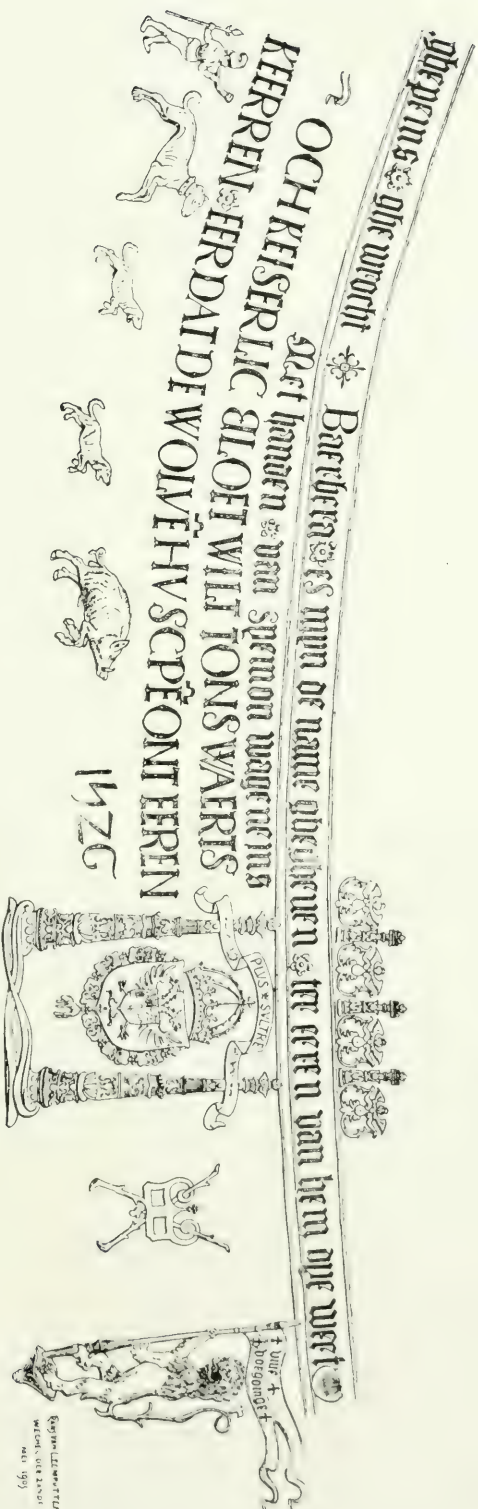 ghe wrocht Baerbera es myn de name ghegheuen ter eeren van hem ope wert
Met handen van symon wagenens
OCH KEISERLIC BLOET WILT TONSWAERTS
KEERREN EER DAT DE WOLVĒ HV SCPĒ ONTEEREN
1526
PLUS SVLTRE
† VIVE †
BOERGOINDE †
MEI 1903